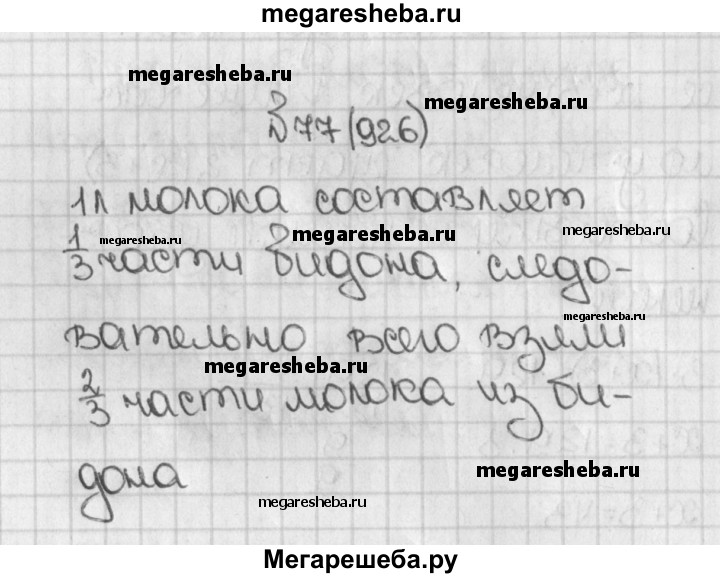 megaresheba.ru
megaresheba.ru
megaresheba.ru
№77(926)
1л молока составляет
megaresheba.ru
megaresheba.ru
megaresheba.ru
1/3 части бидона, следо-
вательно всего взяли
megaresheba.ru
2/3 части молока из би-
дона
megaresheba.ru
megaresheba.ru
Мегарешеба.ру